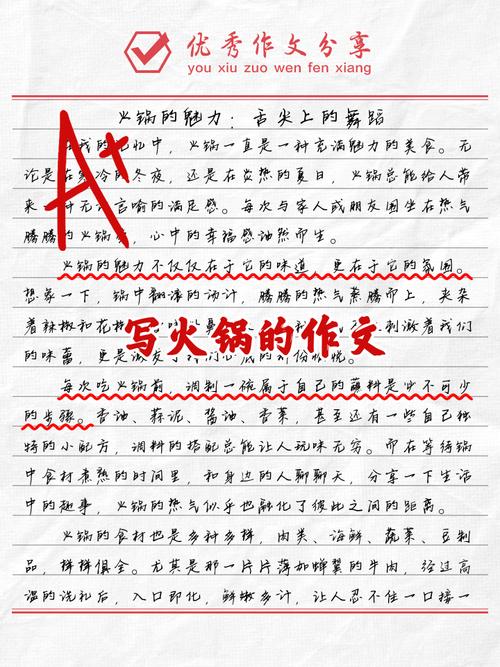 优秀作文分享
you xiu zuo wen fen xiang
火锅的魅力：舌尖上的舞蹈
A+
我的记忆中，火锅一直是一种充满魅力的美食。无
论是在寒冷的冬夜，还是在炎热的夏日，火锅总能给人带
来一种无言喻的满足感。每次与家人或朋友围坐在热气
腾腾的火锅旁，心中的幸福感油然而生。
火锅的魅力不仅仅在于它的味道，更在于它的氛围。
想象一下，锅中翻滚的汤汁，腾腾的热气蒸腾而上，夹杂
着辣椒和花椒 刺激着我们
写火锅的作文
的味蕾，更是激发了我们心底的
每次吃火锅前，调制一碗属于自己的蘸料是少不可少
的步骤。香油、蒜泥、酱油、香菜，甚至还有一些自己独
特的小配方，调料的搭配总能让人玩味无穷。而在等待锅
中食材煮熟的时间里，和身边的人聊聊天，分享一下生活
中的趣事，火锅的热气似乎也融化了彼此之间的距离。
火锅的食材也是多种多样，肉类、海鲜、蔬菜、豆制
品，样样俱全。尤其是那一片片薄如蝉翼的牛肉，经过高
温的洗礼后，入口即化，鲜嫩多汁，让人忍不住一口接一